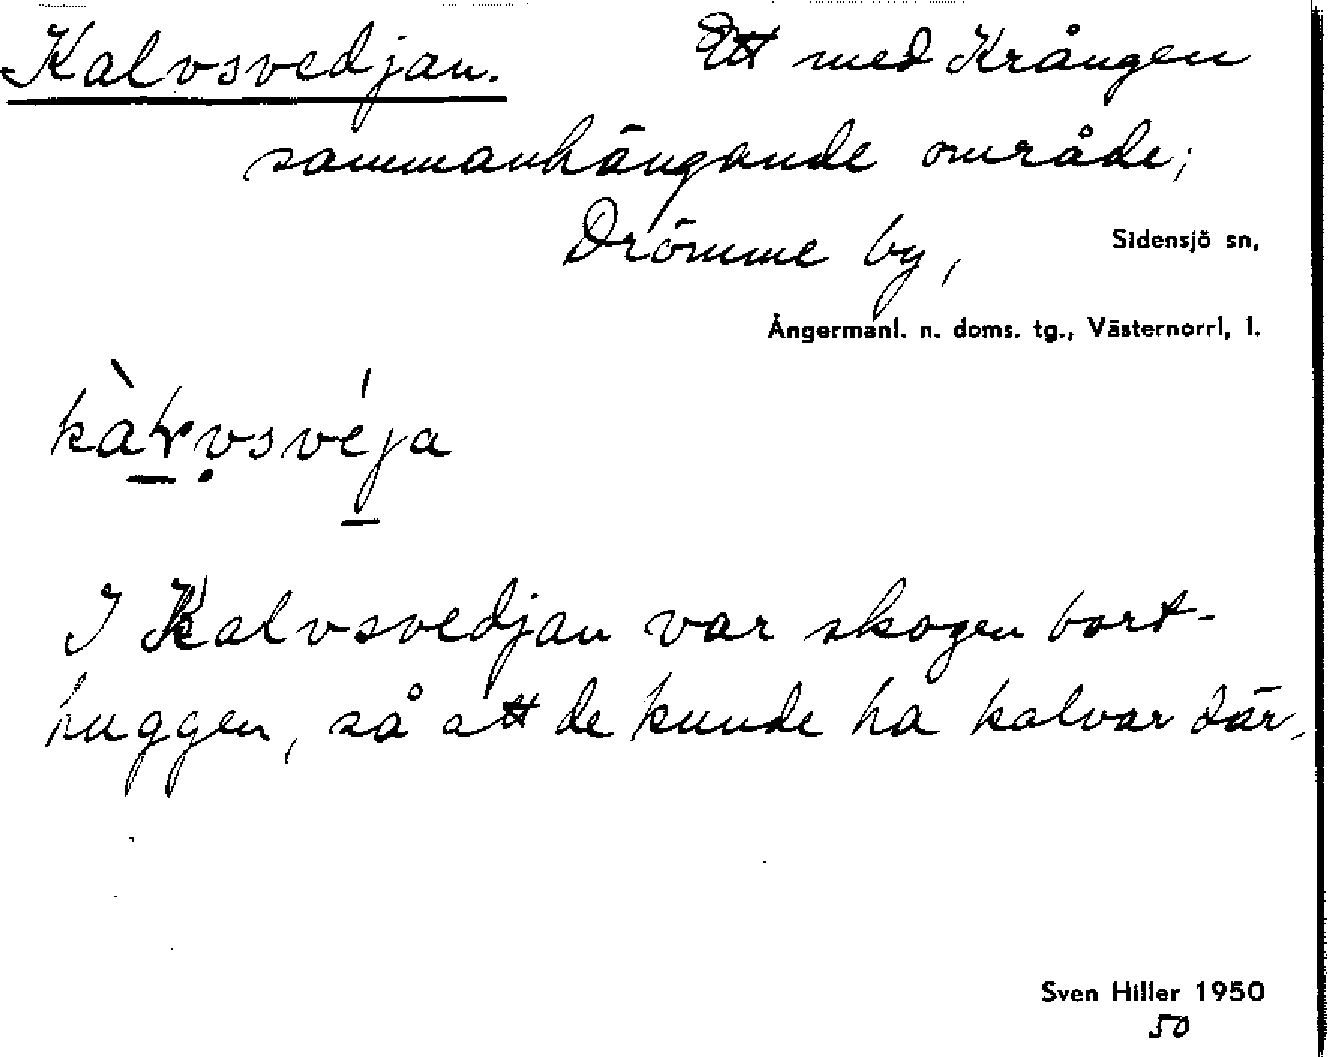 Kalvsvedjan. Ett med Krången
sammanhängande område;
Drömme by, Sidensjö sn,
Ångermanl. n. doms. tg., Västernorrl, l.
I Kalvsvedjan var skogen bort-
huggen, så att de kunde ha kalvar där.
Sven Hiller 1950
50